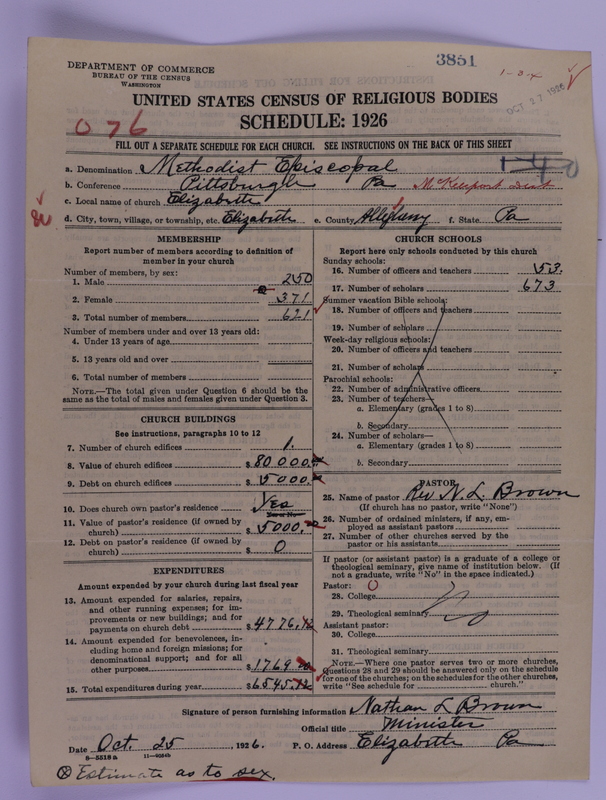 DEPARTMENT OF COMMERCE
BUREAU OF THE CENSUS
WASHINGTON
3851
1-3-4
OCT 27 1926
UNITED STATES CENSUS OF RELIGIOUS BODIES
076
SCHEDULE: 1926
FILL OUT A SEPARATE SCHEDULE FOR EACH CHURCH. SEE INSTRUCTIONS ON THE BACK OF THIS SHEET
a. Denomination Methodist Episcopal
b. Conference Pittsburgh Pa McKeesport Dist
c. Local name of church Elizabeth
d. City, town, village, or township, etc. Elizabeth e. County Allegheny f. State Pa
MEMBERSHIP
Report number of members according to definition of
member in your church
Number of members, by sex:
1. Male 250
2. Female 371
3. Total number of members 621
Number of members under and over 13 years old:
4. Under 13 years of age
5. 13 years old and over
6. Total number of members
NOTE.—The total given under Question 6 should be the
same as the total of males and females given under Question 3.
CHURCH BUILDINGS
See instructions, paragraphs 10 to 12
7. Number of church edifices 1.
8. Value of church edifices $ 80000.
9. Debt on church edifices $ 5000.
10. Does church own pastor's residence Yes
Yes or No
11. Value of pastor's residence (if owned by
church) $ 5000.
12. Debt on pastor's residence (if owned by
church) $ 0
EXPENDITURES
Amount expended by your church during last fiscal year
13. Amount expended for salaries, repairs,
and other running expenses; for im-
provements or new buildings; and for
payments on church debt $ 4776.12
14. Amount expended for benevolences, in-
cluding home and foreign missions; for
denominational support; and for all
other purposes $ 1769
15. Total expenditures during year $ 6545.12
CHURCH SCHOOLS
Report here only schools conducted by this church
Sunday schools:
16. Number of officers and teachers 53.
17. Number of scholars 673
Summer vacation Bible schools:
18. Number of officers and teachers
19. Number of scholars
Week-day religious schools:
20. Number of officers and teachers
21. Number of scholars
Parochial schools:
22. Number of administrative officers
23. Number of teachers—
a. Elementary (grades 1 to 8)
b. Secondary
24. Number of scholars—
a. Elementary (grades 1 to 8)
b. Secondary
PASTOR
25. Name of pastor Rev N. L. Brown
(If church has no pastor, write "None")
26. Number of ordained ministers, if any, em-
ployed as assistant pastors
27. Number of other churches served by the
pastor or his assistants
If pastor (or assistant pastor) is a graduate of a college or
theological seminary, give name of institution below. (If
not a graduate, write "No" in the space indicated.)
Pastor:
28. College
29. Theological seminary
Assistant pastor:
30. College
31. Theological seminary
NOTE.—Where one pastor serves two or more churches,
Questions 28 and 29 should be answered only on the schedule
for one of the churches; on the schedules for the other churches,
write "See schedule for church."
Signature of person furnishing information Nathan L Brown
Official title Minister
Date Oct. 25 1926. P. O. Address Elizabeth Pa
8-5518a
Estimate as to sex.